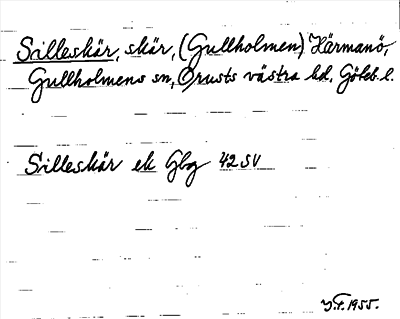 Silleskär, skär, (Gullholmen) Härmanö,
Gullholmens sn, Orusts västra hd, Göteb. l.
Silleskär ek Gbg 42 SV
1955.